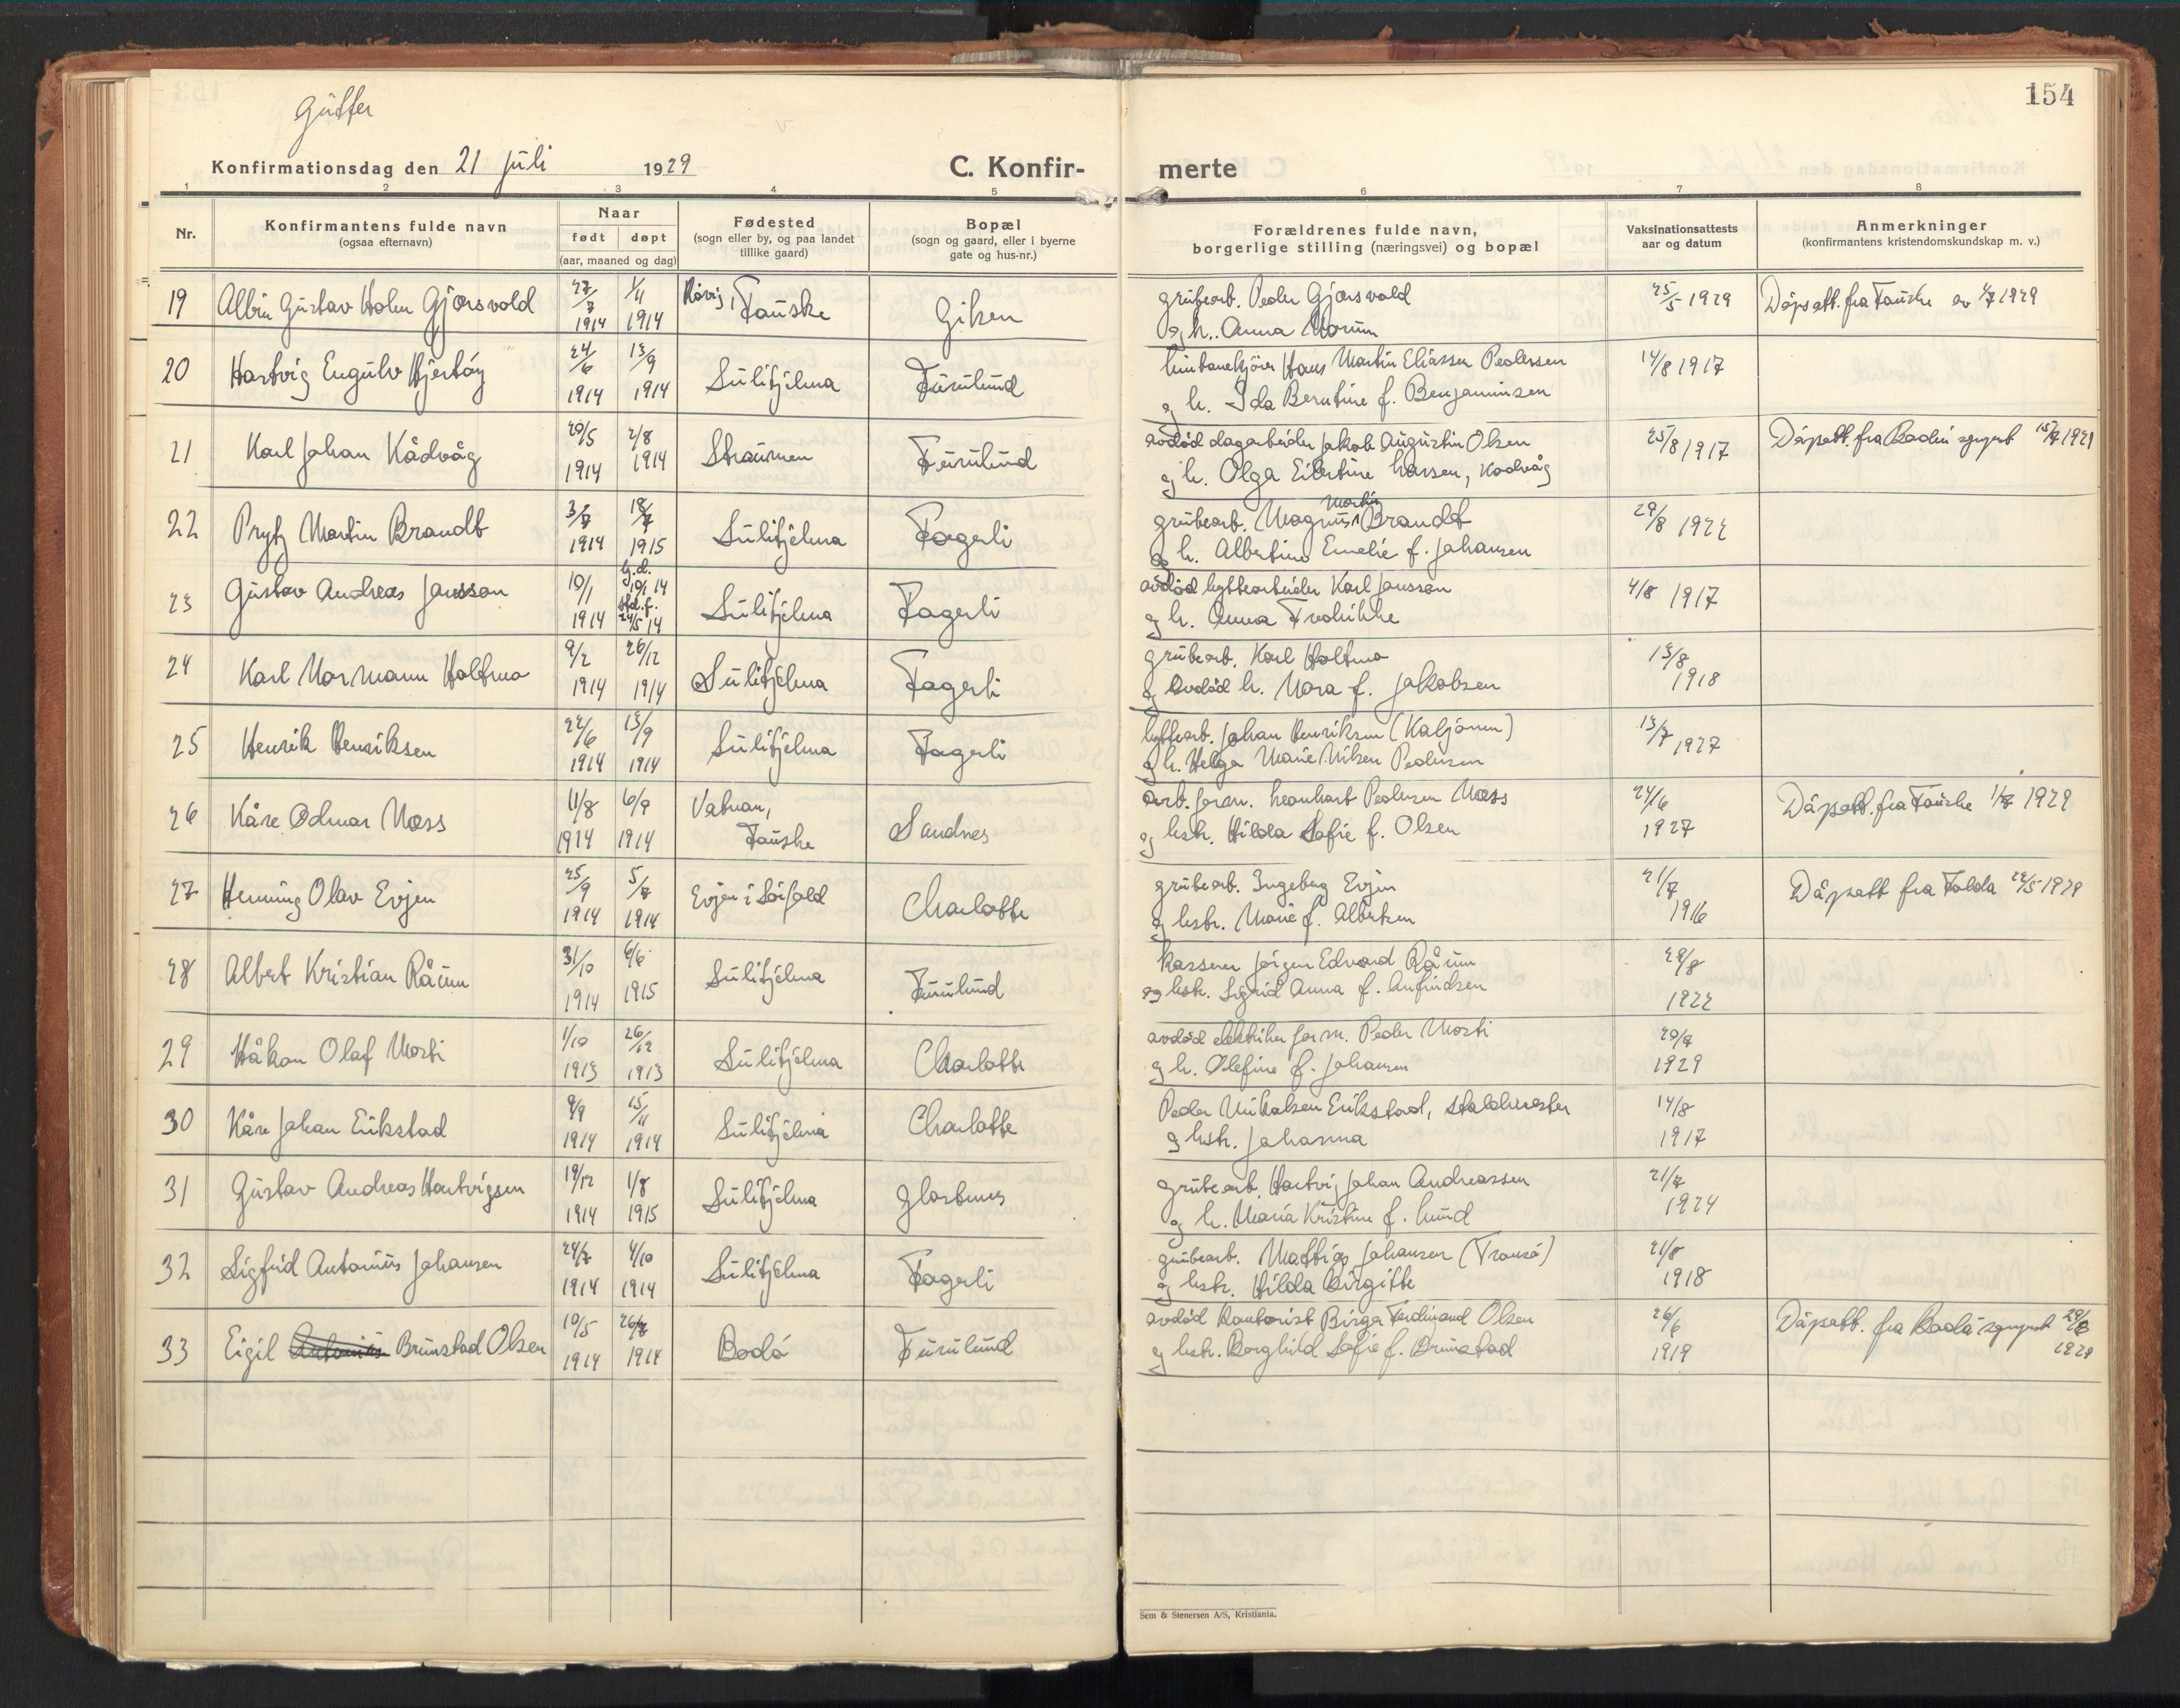 154
Gutter
Konfirmationsdag den 21 juli 1929 C. Konfir- merte
1 2 3 4 5 6 7 8
Nr.
Konfirmantens fulde navn
(ogsaa efternavn)
Naar
født døpt
(aar, maaned og dag)
Fødested
(sogn eller by, og paa landet
tillike gaard)
Bopæl
(sogn og gaard, eller i byerne
gate og hus-nr.)
Forældrenes fulde navn,
borgerlige stilling (næringsvei) og bopæl
Vaksinationsattests
aar og datum
Anmerkninger
(konfirmantens kristendomskundskap m. v.)
19 Albin Gustav Holm Gjørsvold 27/7 1914 1/11 1914 Tauske Giken
grubearb. Peder Gjørsvold
og h. Anna 25/5 1929 Dåpsatt. fra Tauske av 1/7 1929
20 Hartvig Engulv Hjertøy 24/6 1914 13/9 1914 Sulitjelma Furulund
Hans Martin Eliassen Pedersen
og h. Ida Berntine f. Benjaminsen 14/8 1917
21 Karl Johan Kådvåg 20/5 1914 2/8 1914 Straumen Furulund
avdød dagarbeider Jakob Augustin Olsen
og h. Olga Eilertine Larsen, Kodvåg 25/8 1917 Dåpsatt. fra Bodin sgnpr 1929
22 Prytz Martin Brandt 3/7 1914 18/7 1915 Sulitjelma Fagerli
grubearb. Magnus Martin Brandt
og h. Albertine Emelie f. Johansen 29/8 1922
23 Gustav Andreas Jansson 10/1 1914 hj.d. 10/1 14 std. f. 24/5 14 Sulitjelma Fagerli
avdød hyttearbeider Karl Jansson
og h. Anna Fredrikke 4/8 1917
24 Karl Normann Holtmo 9/2 1914 26/12 1914 Sulitjelma Fagerli
grubearb. Karl Holtmo
og avdød h. Nora f. Jakobsen 13/8 1918
25 Henrik Henriksen 22/6 1914 13/9 1914 Sulitjelma Fagerli
hyttearb. Johan Henriksen (Kaljonen)
og h. Helga Marie Nilsen Pedersen 13/7 1927
26 Kåre Odmar Moss 11/8 1914 6/9 1914 Vatnan, Tauske Sandnes
arb. form. Leonhart Pedersen Moss
og hstr. Hilda Sofie f. Olsen 24/6 1927 Dåpsatt. fra Tauske 1/7 1929
27 Henning Olav Evjen 25/9 1914 5/7 1914 Evjen i Sørfold Charlotte
grubearb. Ingeberg Evjen
og hstr. Marie f. Albertsen 21/7 1916 Dåpsatt fra Folda 22/5 1929
28 Albert Kristian Råum 31/10 1914 6/6 1915 Sulitjelma Furulund
kasserer Jørgen Edvard Råum
og hstr. Sigrid Anna f. Anfindsen 28/8 1922
29 Håkon Olaf Mosti 1/10 1913 26/12 1913 Sulitjelma Charlotte
avdød elektriker form. Peder Mosti
og h. Olefine f. Johansen 20/7 1929
30 Kåre Johan Erikstad 9/9 1914 15/11 1914 Sulitjelma Charlotte
Peder Mikalsen Erikstad, staldmester
og hstr. Johanna 14/8 1917
31 Gustav Andreas Hartvigsen 19/12 1914 1/8 1915 Sulitjelma Glastunes
grubearb. Hartvig Johan Andreassen
og h. Maria Kristine f. Lund 21/7 1924
32 Sigfrid Antonius Johansen 24/7 1914 4/10 1914 Sulitjelma Fagerli
grubearb. Mattias Johansen (Tromsø)
og hstr. Hilda Birgitte 21/8 1918
33 Eigil Antonius Brunstad Olsen 10/5 1914 26/7 1914 Bodø Furulund
avdød Kontorist Birger Ferdinand Olsen
og hstr. Borghild Sofie f. Brunstad 26/6 1919 Dåpsatt. fra Bodø sgnpr 29/6 1929
Sem & Stenersen A/S, Kristiania.